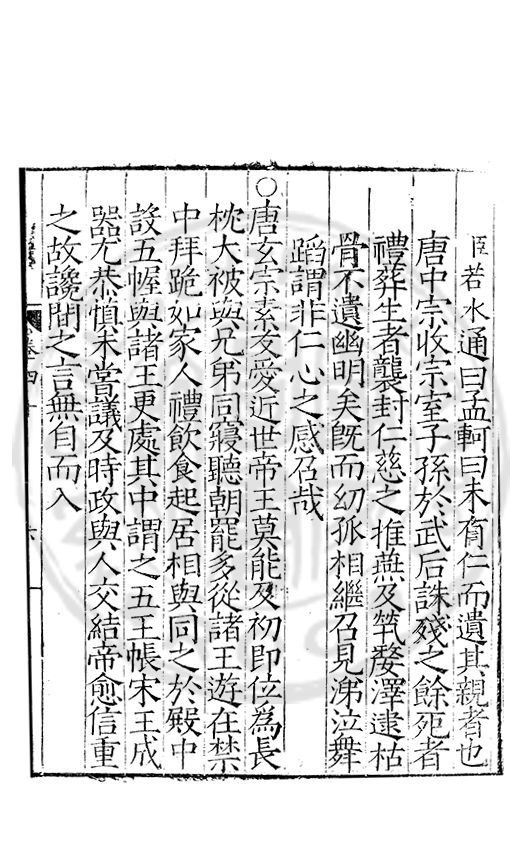 臣若水通曰孟軻曰未有仁而遺其親者也
唐中宗收宗室子孫於武后誅殘之餘死者
禮葬生者襲封仁慈之推燕及煢嫠澤逮枯
骨不遺幽明矣既而幼孤相繼召見涕泣舞
蹈謂非仁心之感召哉
○唐玄宗素友愛近世帝王莫能及初即位為長
枕大被與兄弟同寢聽朝罷多從諸王遊在禁
中拜跪如家人禮飲食起居相與同之於殿中
設五幄與諸王更處其中謂之五王帳宋王成
器尤恭慎未嘗議及時政與人交結帝愈信重
之故讒間之言無自而入
卷四十
六